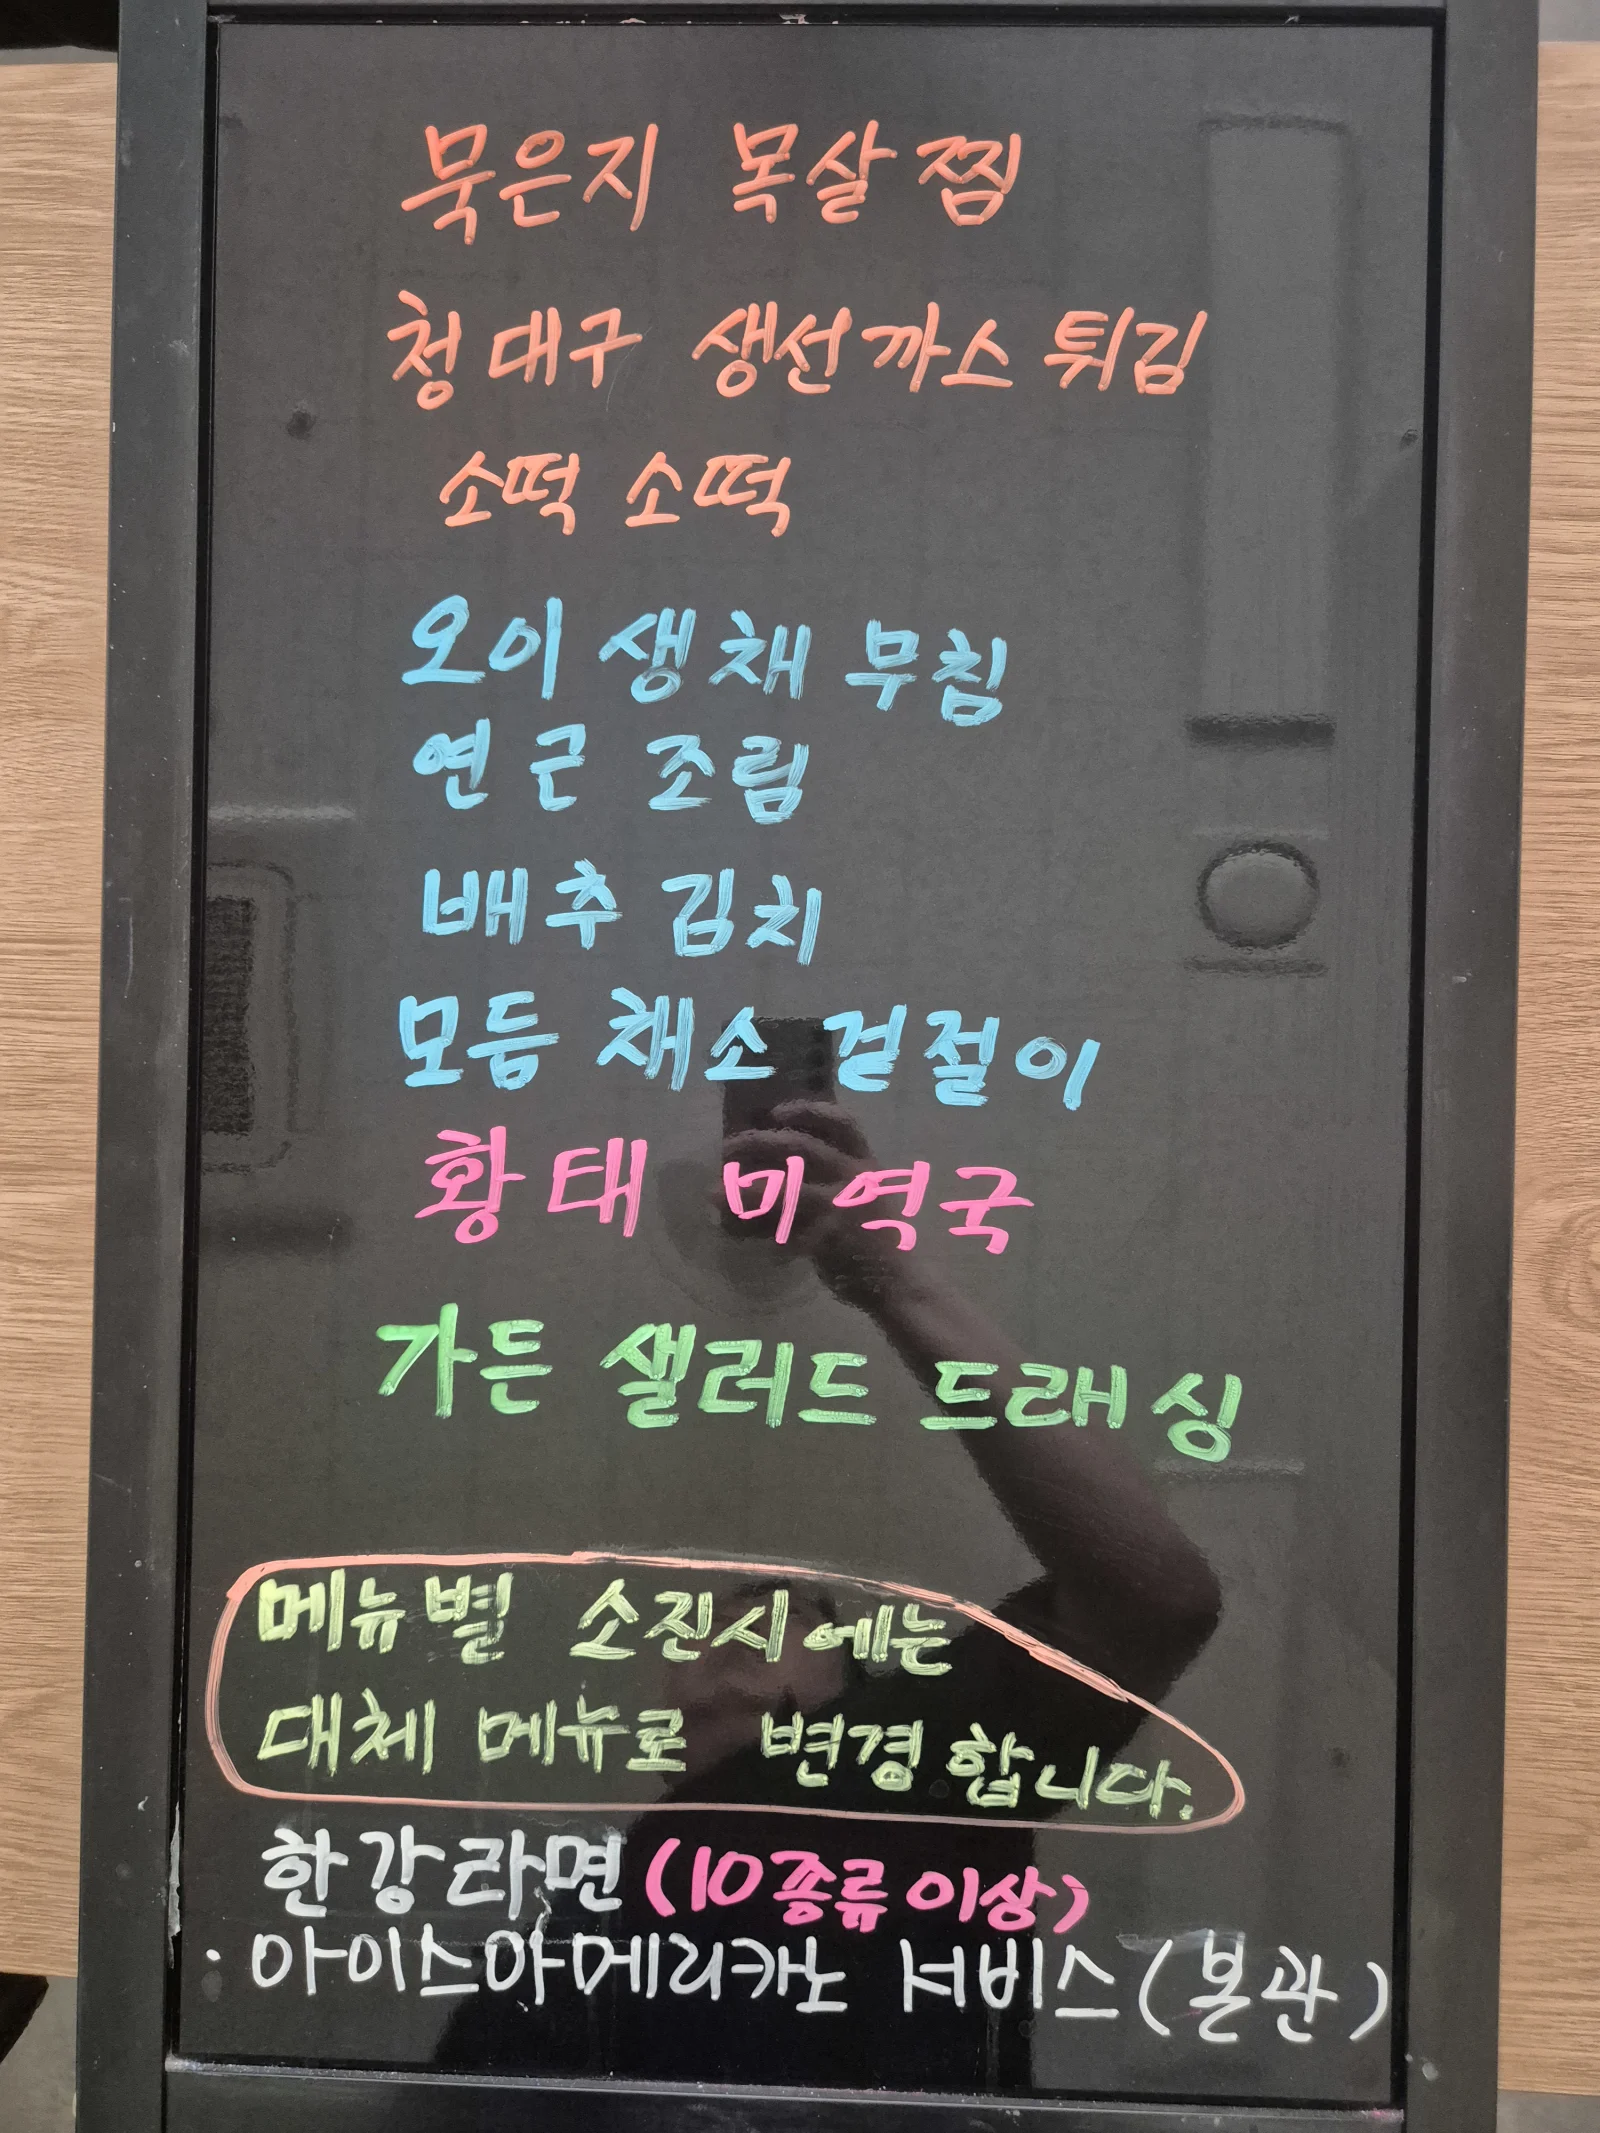 묵은지 목살찜
청대구 생선까스튀김
소떡 소떡
오이 생채 무침
연근 조림
배추 김치
모듬 채소 겉절이
황태 미역국
가든 샐러드 드래싱
메뉴별 소진시에는
대체 메뉴로 변경합니다.
한강라면 (10종류이상)
· 아이스아메리카노 서비스 (본관)